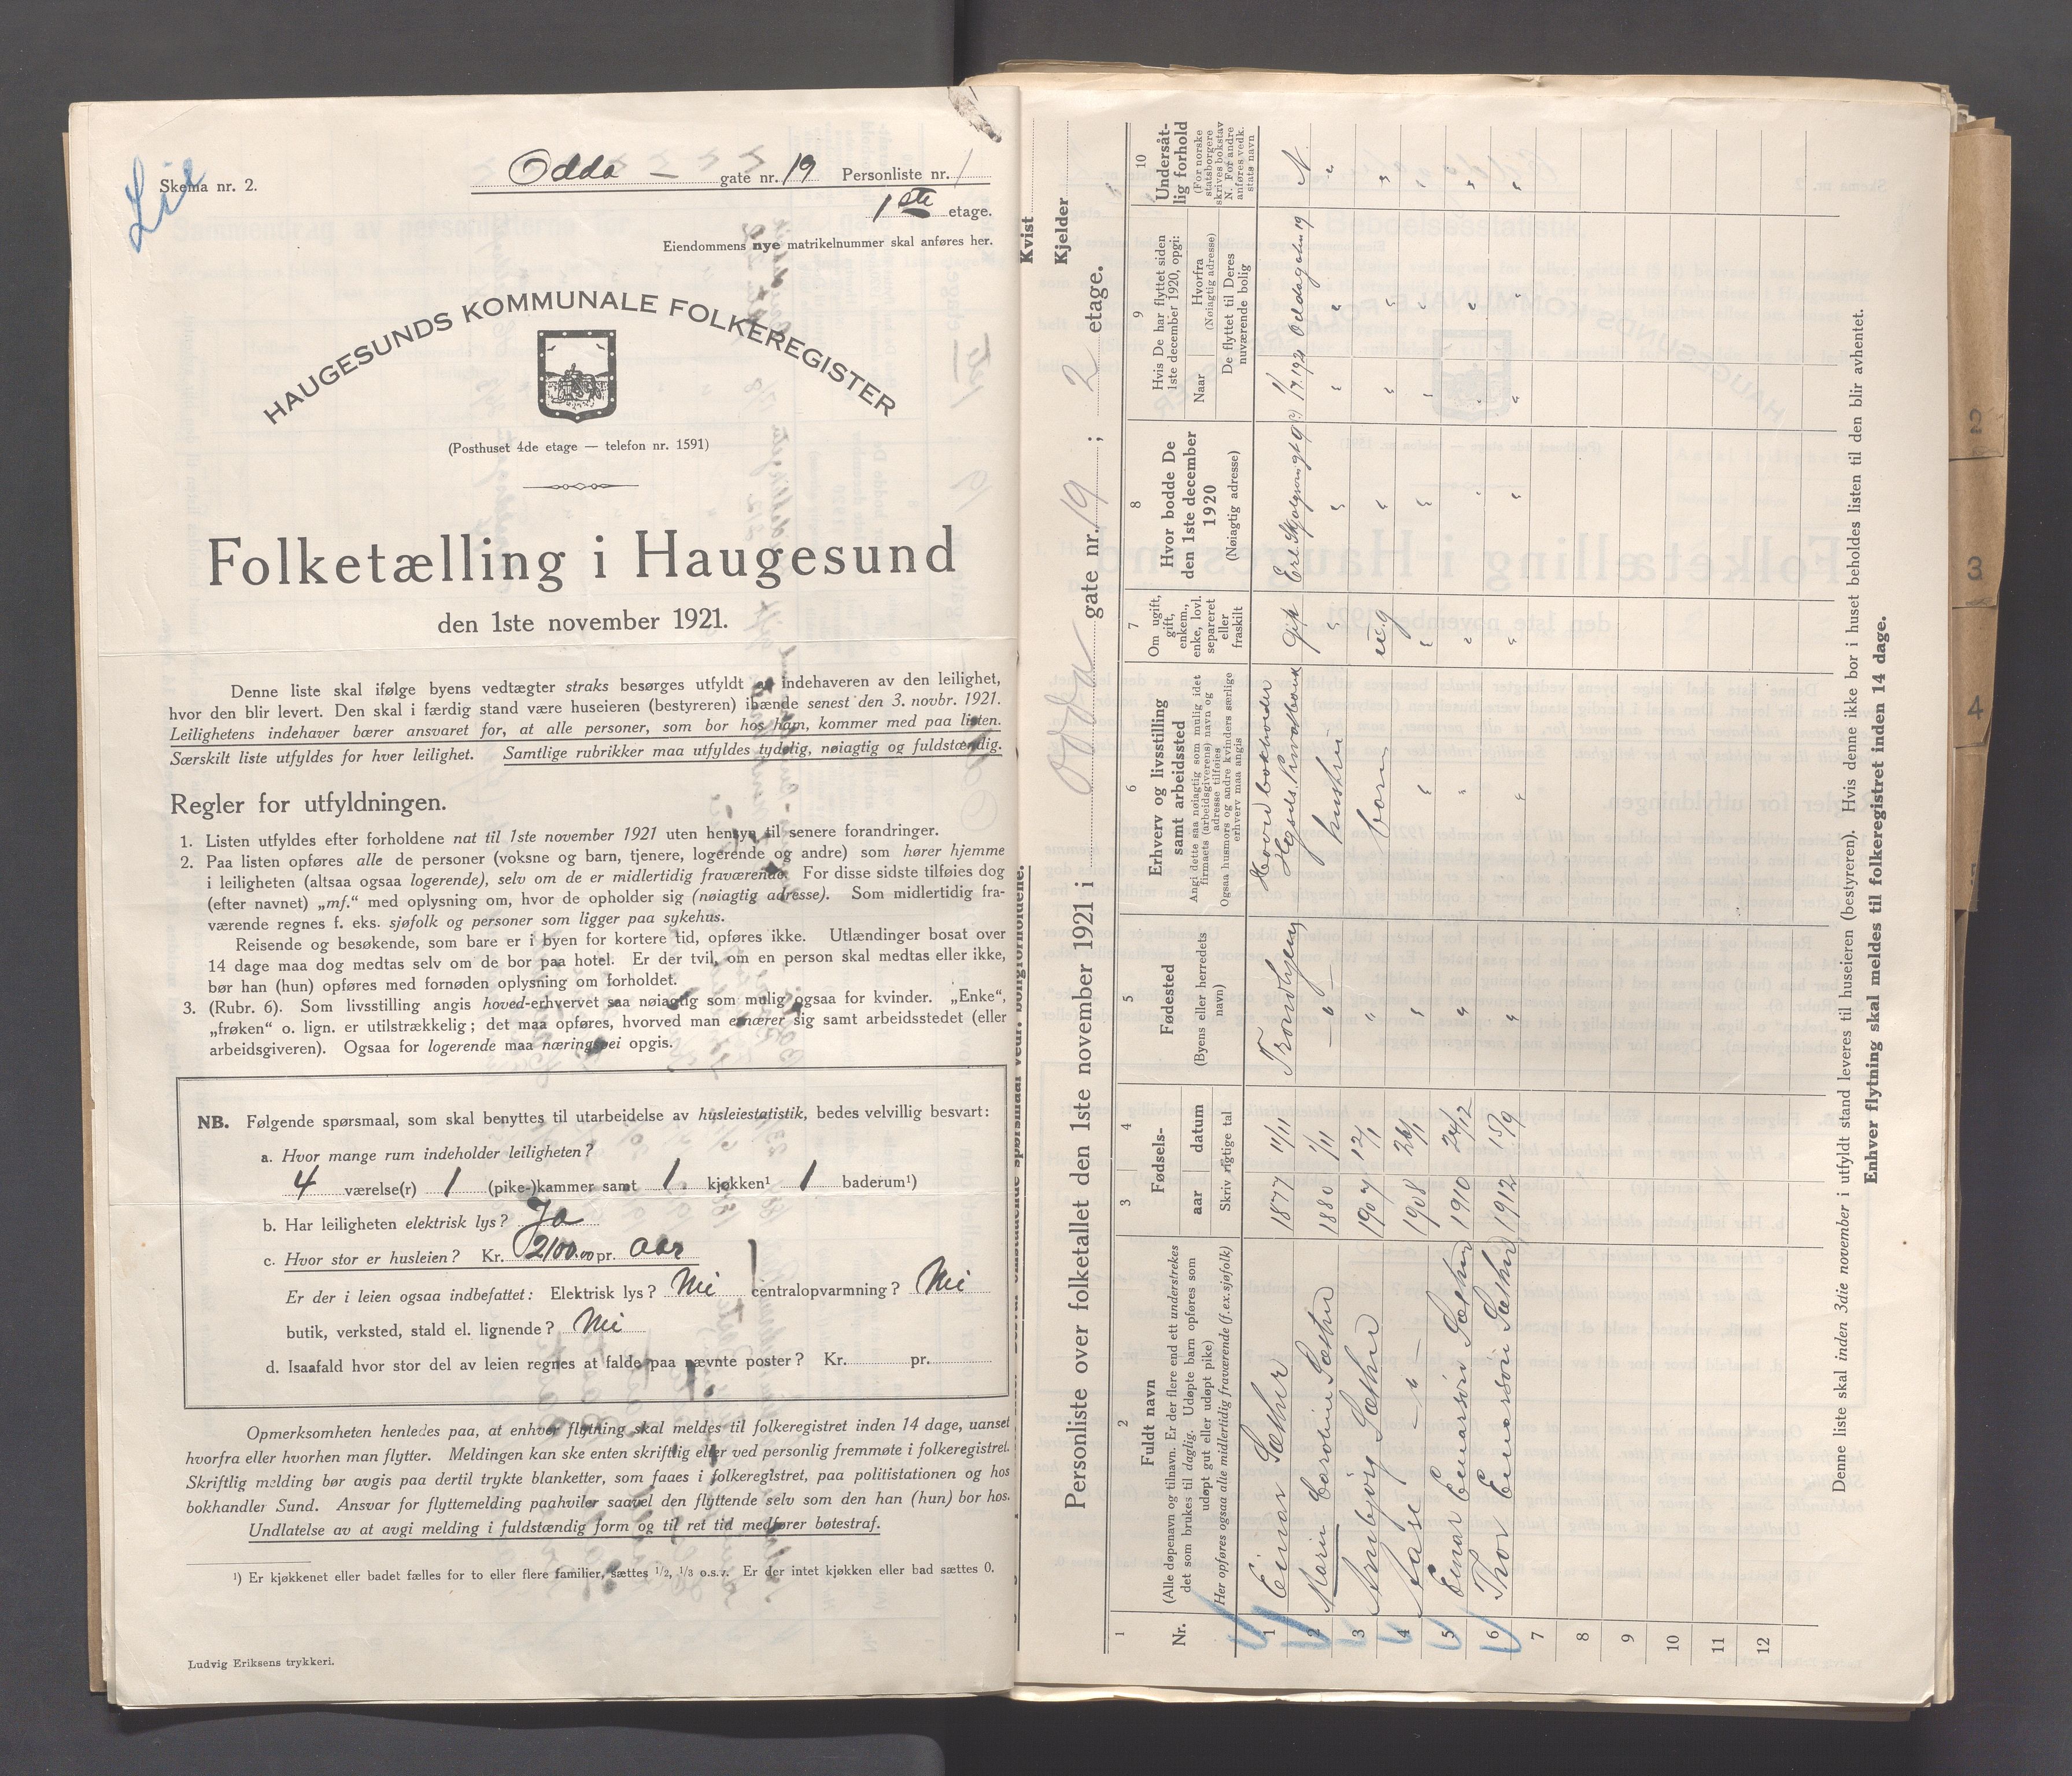 Lie
Skema nr. 2.
Odda — gate nr. 19 Personliste nr. 1
1ste etage.
Eiendommens nye matrikelnummer skal anføres her.
HAUGESUNDS KOMMUNALE FOLKEREGISTER
(Posthuset 4de etage — telefon nr. 1591)
Folketælling i Haugesund
den 1ste november 1921.
Denne liste skal ifølge byens vedtægter straks besørges utfyldt av indehaveren av den leilighet,
hvor den blir levert. Den skal i færdig stand være huseieren (bestyreren) ihænde senest den 3. novbr. 1921.
Leilighetens indehaver bærer ansvaret for, at alle personer, som bor hos ham, kommer med paa listen.
Særskilt liste utfyldes for hver leilighet. Samtlige rubrikker maa utfyldes tydelig, nøiagtig og fuldstændig.
Regler for utfyldningen.
1. Listen utfyldes efter forholdene nat til 1ste november 1921 uten hensyn til senere forandringer.
2. Paa listen opføres alle de personer (voksne og barn, tjenere, logerende og andre) som hører hjemme
i leiligheten (altsaa ogsaa logerende), selv om de er midlertidig fraværende. For disse sidste tilføies dog
(efter navnet) „mf.“ med oplysning om, hvor de opholder sig (nøiagtig adresse). Som midlertidig fra-
værende regnes f. eks. sjøfolk og personer som ligger paa sykehus.
Reisende og besøkende, som bare er i byen for kortere tid, opføres ikke. Utlændinger bosat over
14 dage maa dog medtas selv om de bor paa hotel. Er der tvil, om en person skal medtas eller ikke,
bør han (hun) opføres med fornøden oplysning om forholdet.
3. (Rubr. 6). Som livsstilling angis hoved-erhvervet saa nøiagtig som mulig ogsaa for kvinder. „Enke“,
„frøken“ o. lign. er utilstrækkelig; det maa opføres, hvorved man ernærer sig samt arbeidsstedet (eller
arbeidsgiveren). Ogsaa for logerende maa næringsvei opgis.
NB. Følgende spørsmaal, som skal benyttes til utarbeidelse av husleiestatistik, bedes velvillig besvart:
a. Hvor mange rum indeholder leiligheten?
4 værelse(r) 1 (pike-)kammer samt 1. kjøkken¹ 1 baderum¹)
b. Har leiligheten elektrisk lys? Ja
c. Hvor stor er husleien? Kr. 2100.00 pr. aar
Er der i leien ogsaa indbefattet: Elektrisk lys? Nei centralopvarmning? Nei
butik, verksted, stald el. lignende? Nei
d. Isaafald hvor stor del av leien regnes at falde paa nævnte poster? Kr. pr.
Opmerksomheten henledes paa, at enhver flytning skal meldes til folkeregistret inden 14 dage, uanset
hvorfra eller hvorhen man flytter. Meldingen kan ske enten skriftlig eller ved personlig fremmøte i folkeregistret.
Skriftlig melding bør avgis paa dertil trykte blanketter, som faaes i folkeregistret, paa politistationen og hos
bokhandler Sund. Ansvar for flyttemelding paahviler saavel den flyttende selv som den han (hun) bor hos.
Undlatelse av at avgi melding i fuldstændig form og til ret tid medfører bøtestraf.
¹) Er kjøkkenet eller badet fælles for to eller flere familier, sættes 1/2, 1/3 o.s.v. Er der intet kjøkken eller bad sættes 0.
Ludvig Eriksens trykkeri.
Kvist
Kjelder
Personliste over folketallet den 1ste november 1921 i Odda gate nr. 19 ; 2 etage.
1 2 3 4 5 6 7 8 9 10
Nr.
Fuldt navn
(Alle døpenavn og tilnavn. Er der flere end ett understrekes
det som brukes til daglig. Udøpte barn opføres som
udøpt gut eller udøpt pike)
Her opføres ogsaa alle midlertidig fraværende (f.ex.sjøfolk)
Fødsels-
aar datum
Skriv rigtige tal
Fødested
(Byens eller herredets
navn)
Erhverv og livsstilling
samt arbeidssted
Angi dette saa nøiagtig som mulig idet
firmaets (arbeidsgiverens) navn og
adresse tilføies
Ogsaa husmors og andre kvinders særlige
erhverv maa angis
Om ugift,
gift,
enkem.,
enke, lovl.
separeret
eller
fraskilt
Hvor bodde De
den 1ste december
1920
(Nøiagtig adresse)
Hvis De har flyttet siden
1ste december 1920, opgi:
Naar Hvorfra
(Nøiagtig adresse)
De flyttet til Deres
nuværende bolig
Undersåt-
lig forhold
(For norske
statsborgere
skrives bokstav
N. For andre
anføres vedk.
stats navn
1 Einar Sæther 1877 11/11 Trondhjem Hovedbokholder gift N.
2 Marin Caroline Sæther 1880 1/11 — " — hustru " " " " "
3 Arnbjørg Sæther 1907 12/1 " barn ug " " " "
4 Aase — " — 1908 26/1 " " " " " " "
5 Einar Einarsøn Sæther 1910 24/12 " " " " " " "
6 Thor Einarsøn Sæther 1912 13/9 " " " " " " "
7
8
9
10
11
12
Denne liste skal inden 3die november i utfyldt stand leveres til huseieren (bestyreren). Hvis denne ikke bor i huset beholdes listen til den blir avhentet.
Enhver flytning skal meldes til folkeregistret inden 14 dage.
2
3
4